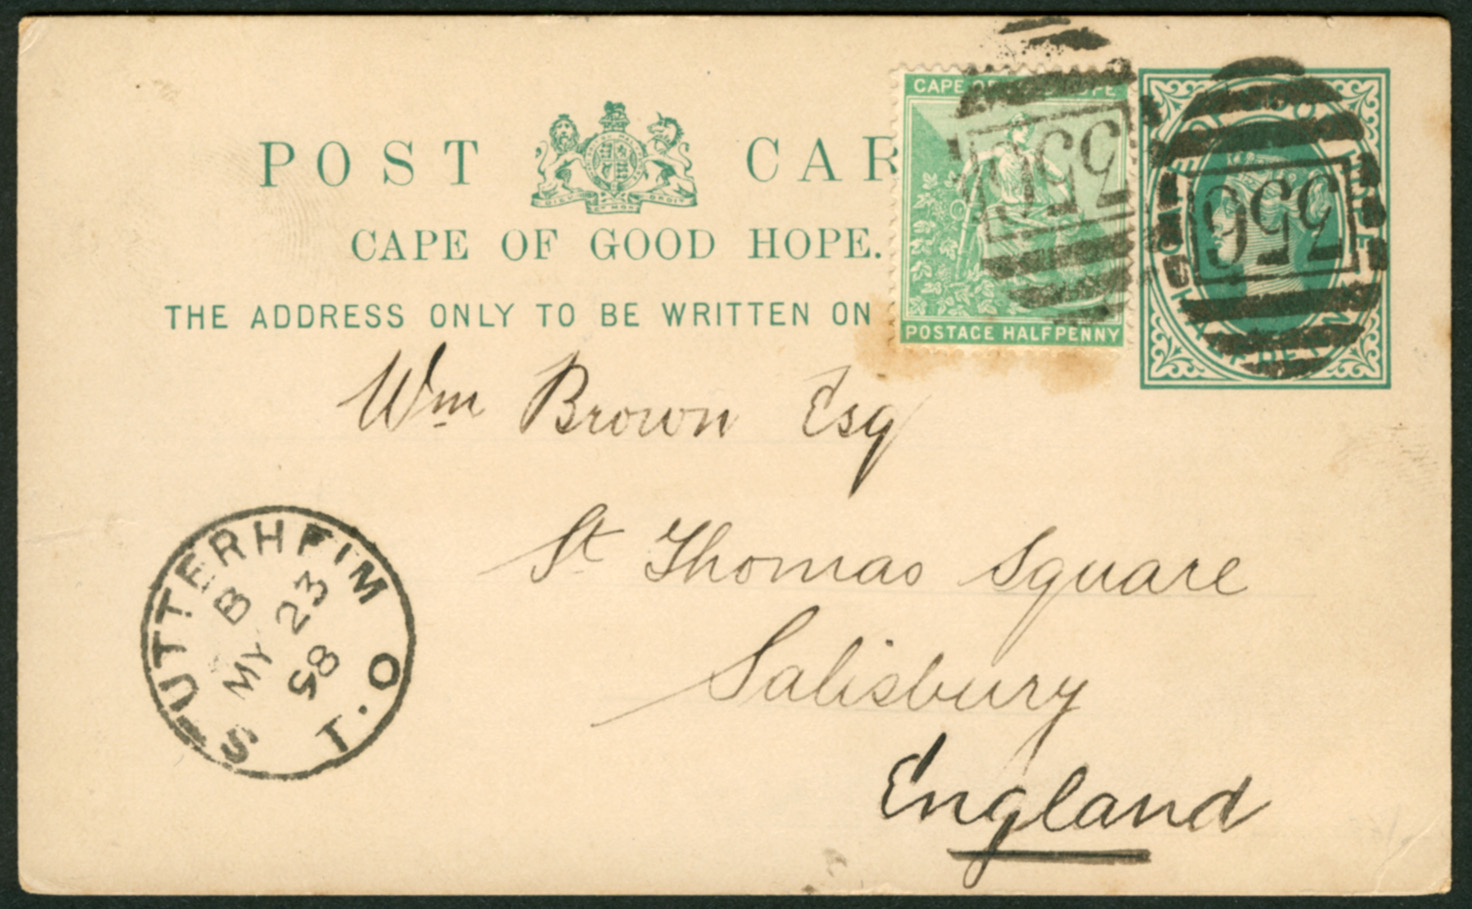 POST CAR
CAPE OF GOOD HOPE.
THE ADDRESS ONLY TO BE WRITTEN ON
CAPE OF HOPE
POSTAGE HALFPENNY
356
356
Wm Brown Esq
St Thomas Square
Salisbury
England
STUTTERHEIM T.O
B
MY 23
98